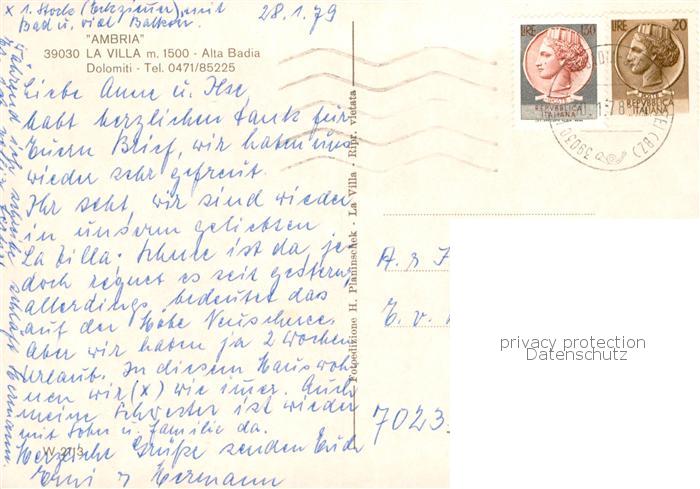 x 1. Stock (Eckzimmer) mit
Bad u. viel Balkon.
28.1.79
"AMBRIA"
39030 LA VILLA m. 1500 - Alta Badia
Dolomiti - Tel. 0471/85225
Liebe Anne u. Ilse,
habt herzlichen Dank für
Euern Brief, wir haben uns
wieder sehr gefreut.
Ihr seht, wir sind wieder
in unserm geliebten
La Villa. Schnee ist da, je-
doch regnet es seit gestern,
allerdings bedeutet das
auf der Höhe Neuschnee.
Aber wir haben ja 2 Wochen
Urlaub. In diesem Haus woh-
nen wir (x) wie immer. Auch
meine Schwester ist wieder
mit Sohn u. Familie da.
Herzliche Grüße senden Euch
Erni & Hermann
W 21/3
Während ich schreibe schläft Hermann.
Fotoedizione H. Planinschek - La Villa - Ripr. vietata
LIRE 150
REPVBBLICA
ITALIANA
LIRE 20
REPVBBLICA
ITALIANA
39030
(BZ)
A. &
E. v.
7023
privacy protection
Datenschutz